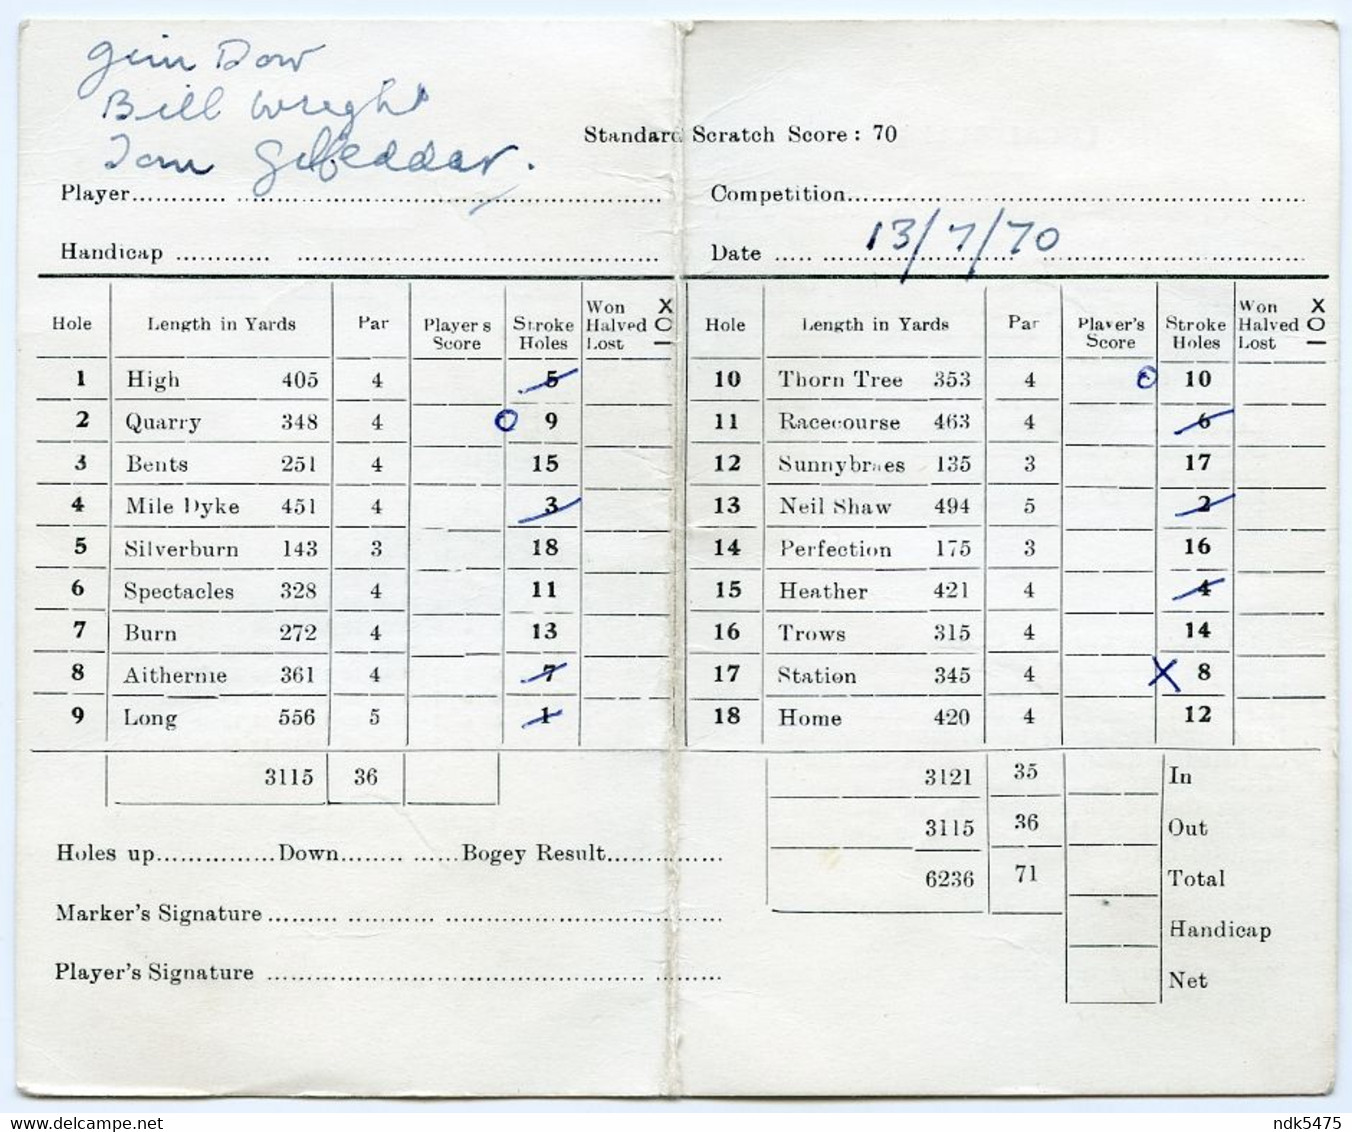 Jim Dow
Bill Wright
Tom Gilfeddar.
Standard Scratch Score: 70
Player
Competition
Handicap
Date 13/7/70
Hole Length in Yards Par Player's Score Stroke Holes Won X Halved O Lost —
1 High 405 4 5
2 Quarry 348 4 O 9
3 Bents 251 4 15
4 Mile Dyke 451 4 3
5 Silverburn 143 3 18
6 Spectacles 328 4 11
7 Burn 272 4 13
8 Aithernie 361 4 7
9 Long 556 5 1
3115 36
Hole Length in Yards Par Player's Score Stroke Holes Won X Halved O Lost —
10 Thorn Tree 353 4 O 10
11 Racecourse 463 4 6
12 Sunnybraes 135 3 17
13 Neil Shaw 494 5 2
14 Perfection 175 3 16
15 Heather 421 4 4
16 Trows 315 4 14
17 Station 345 4 X 8
18 Home 420 4 12
3121 35 In
3115 36 Out
6236 71 Total
Handicap
Net
Holes up Down Bogey Result
Marker's Signature
Player's Signature
delcampe.net
ndk5475